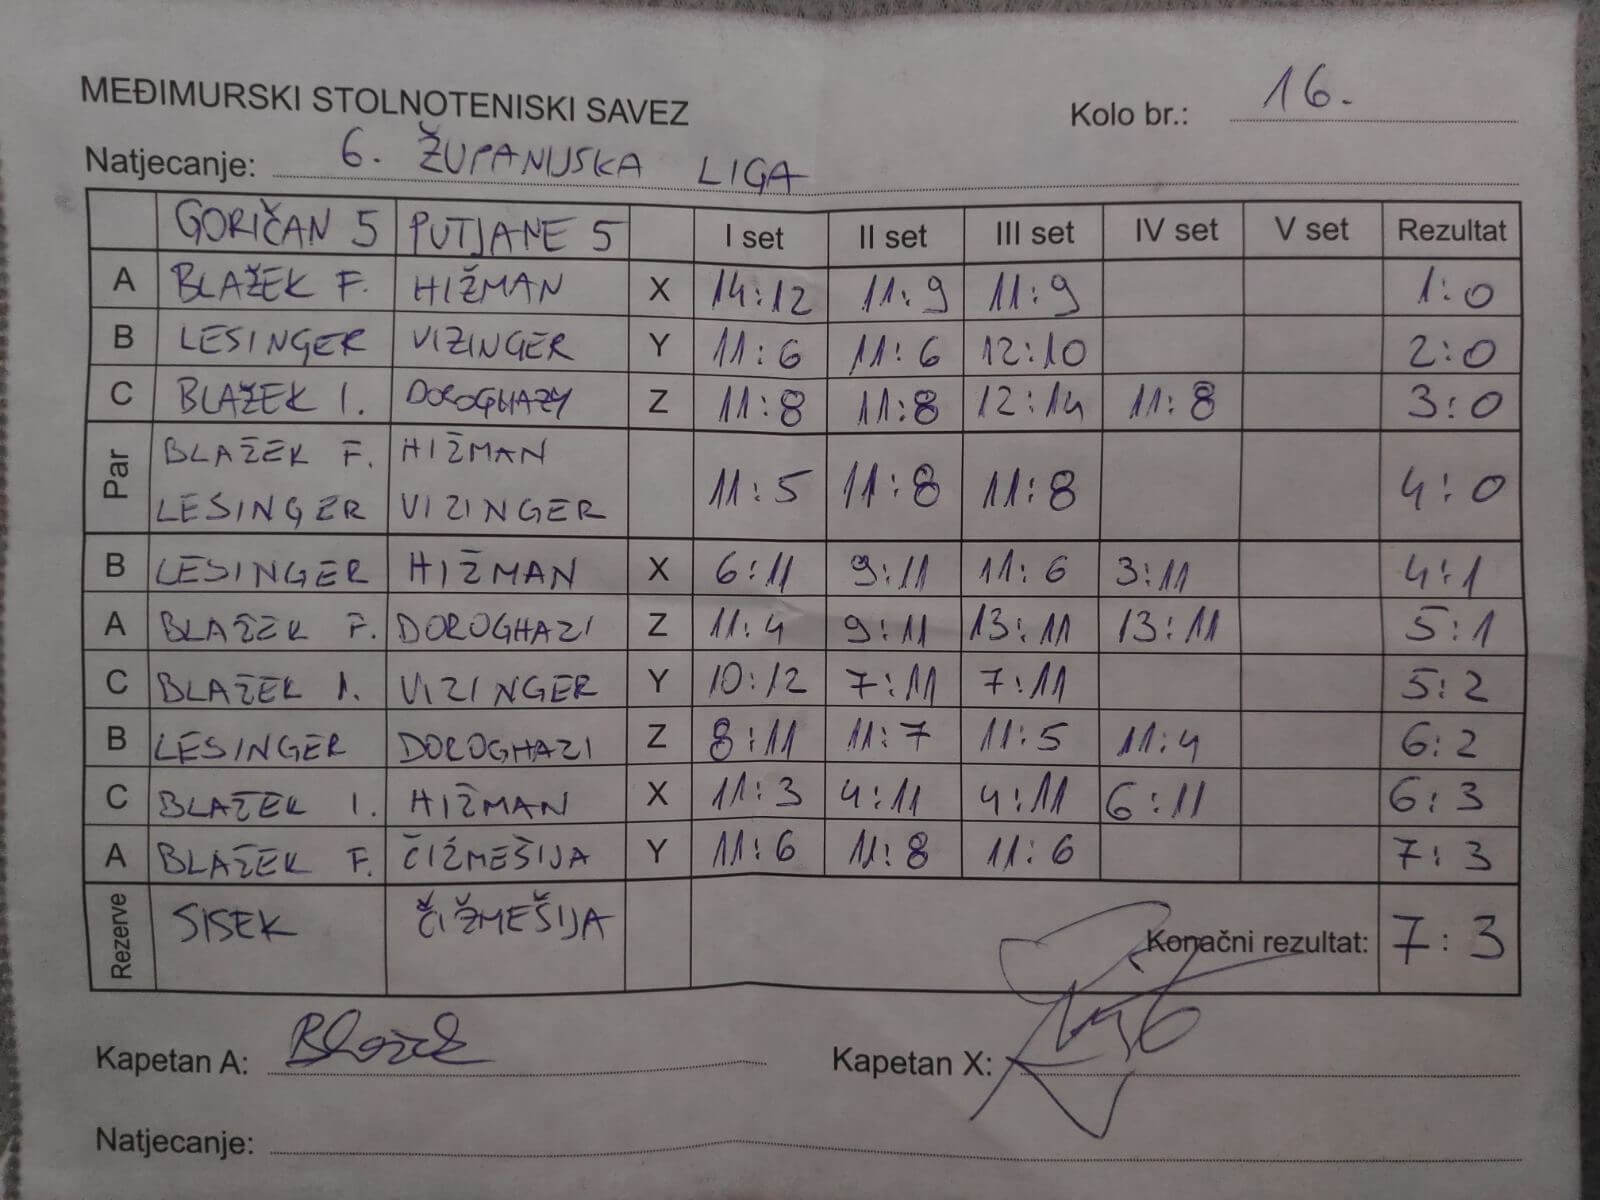 MEĐIMURSKI STOLNOTENISKI SAVEZ
Kolo br.: 16.
Natjecanje: 6. ŽUPANIJSKA LIGA
GORIČAN 5 PUTJANE 5 I set II set III set IV set V set Rezultat
A BLAŽEK F. HIŽMAN X 14:12 11:9 11:9 1:0
B LESINGER VIZINGER Y 11:6 11:6 12:10 2:0
C BLAŽEK I. DOROGHAZY Z 11:8 11:8 12:14 11:8 3:0
Par BLAŽEK F. HIŽMAN
LESINGER VIZINGER 11:5 11:8 11:8 4:0
B LESINGER HIŽMAN X 6:11 9:11 11:6 3:11 4:1
A BLAŽEK F. DOROGHAZI Z 11:4 9:11 13:11 13:11 5:1
C BLAŽEK I. VIZINGER Y 10:12 7:11 7:11 5:2
B LESINGER DOROGHAZI Z 8:11 11:7 11:5 11:4 6:2
C BLAŽEK I. HIŽMAN X 11:3 4:11 4:11 6:11 6:3
A BLAŽEK F. ČIŽMEŠIJA Y 11:6 11:8 11:6 7:3
Rezerve SISEK ČIŽMEŠIJA Konačni rezultat: 7:3
Kapetan A: Blažek Kapetan X:
Natjecanje: